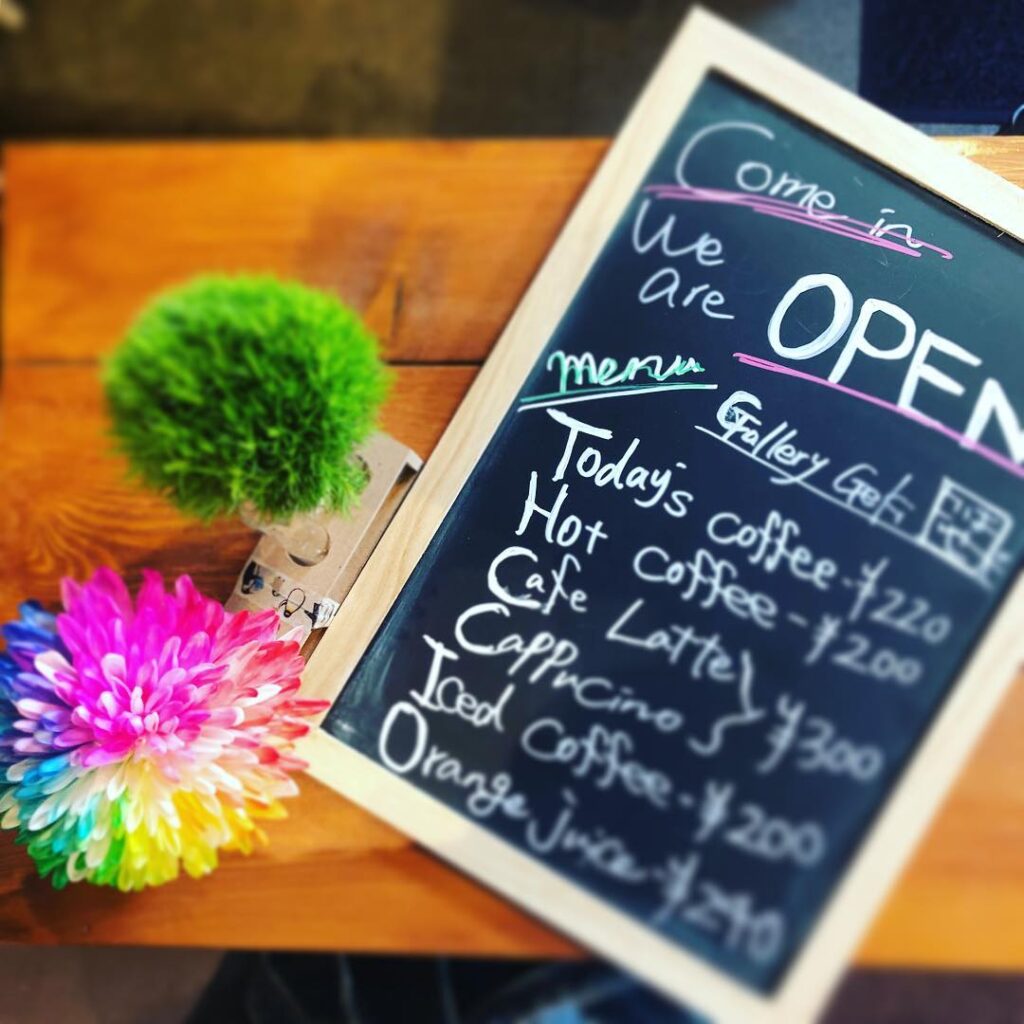 Come in
We are OPEN
menu
Gallery
Today's coffee - ¥220
Hot coffee - ¥200
Cafe Latte
Cappucino } ¥300
Iced coffee - ¥200
Orange juice - ¥240